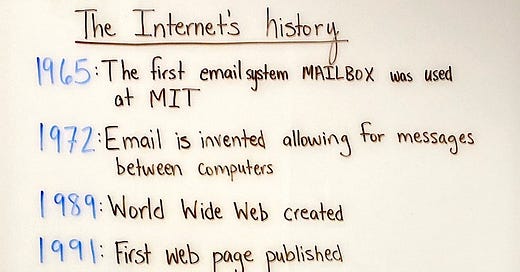 The Internet's history
1965: The first email system MAILBOX was used
at MIT
1972: Email is invented allowing for messages
between computers
1989: World Wide Web created
1991: First web page published